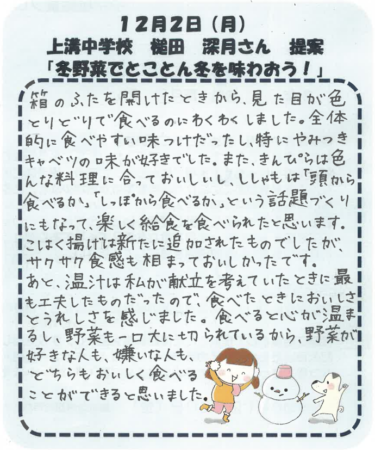 12月2日（月）
上溝中学校 槌田 深月さん 提案
「冬野菜でとことん冬を味わおう！」
箱のふたを開けたときから、見た目が色
とりどりで食べるのにわくわくしました。全体
的に食べやすい味つけだったし、特にやみつき
キャベツの味が好きでした。また、きんぴらは色
んな料理に合っておいしいし、ししゃもは「頭から
食べるか」「しっぽから食べるか」という話題づくり
にもなって、楽しく給食を食べられたと思います。
こはく揚げは新たに追加されたものでしたが、
サクサク食感も相まっておいしかったです。
あと、温汁は私が献立を考えていたときに最
も工夫したものだったので、食べたときにおいしさ
とうれしさを感じました。食べると心が温ま
るし、野菜も一口大に切られているから、野菜が
好きな人も、嫌いな人も、
どちらもおいしく食べる
ことができると思いました。